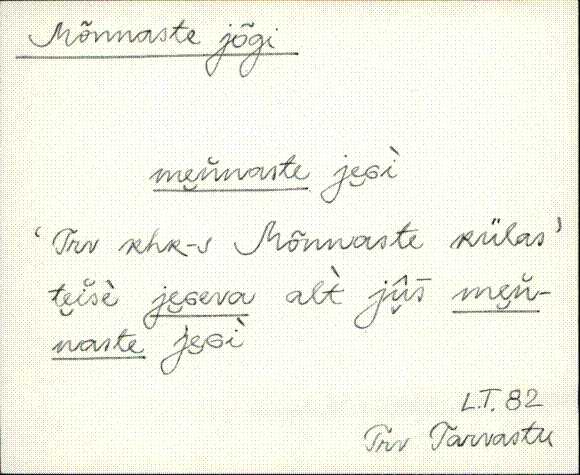 Mõnnaste jõgi
me̮ňnaste je̮ɢì
‘Trv khk-s Mõnnaste külas’
te̮i̬šè je̮ɢeva alt̀ jū̮s̄ me̮ň-
naste je̮ɢì
L.T. 82
Trv Tarvastu